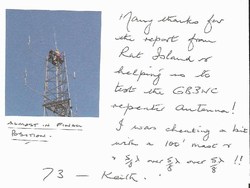 "Many thanks for
the report from
Rat Island &
helping us to
test the GB3WC
repeater Antenna!
I was cheating a bit
with a 100' mast &
a 5/8λ over 5/8λ over 5/8λ !!
ALMOST IN FINAL
POSITION.
73 — Keith.